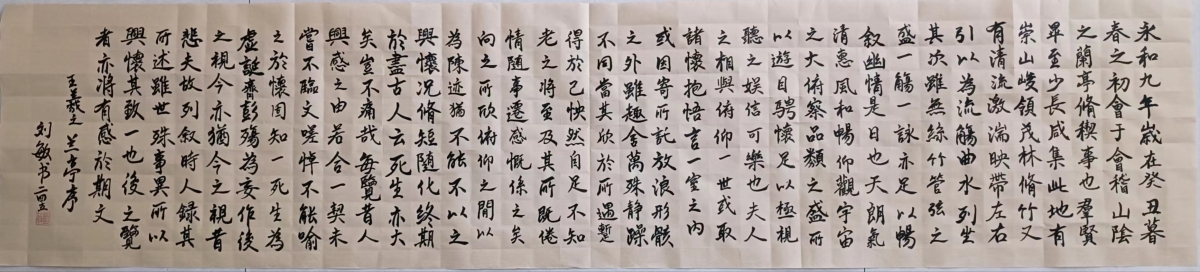 永和九年歲在癸丑暮
春之初會于會稽山陰
之蘭亭脩稧事也羣賢
畢至少長咸集此地有
崇山峻領茂林脩竹又
有清流激湍映帶左右
引以為流觴曲水列坐
其次雖無絲竹管弦之
盛一觴一詠亦足以暢
叙幽情是日也天朗氣
清惠風和暢仰觀宇宙
之大俯察品類之盛所
以遊目騁懷足以極視
聽之娛信可樂也夫人
之相與俯仰一世或取
諸懷抱悟言一室之内
或因寄所託放浪形骸
之外雖趣舍萬殊静躁
不同當其欣於所遇蹔
得於己怏然自足不知
老之將至及其所既倦
情隨事遷感慨係之矣
向之所欣俯仰之間以
為陳迹猶不能不以之
興懷況脩短隨化終期
於盡古人云死生亦大
矣豈不痛哉每覽昔人
興感之由若合一契未
嘗不臨文嗟悼不能喻
之於懷固知一死生為
虛誕齊彭殤為妄作後
之視今亦猶今之視昔
悲夫故列叙時人錄其
所述雖世殊事異所以
興懷其致一也後之覽
者亦將有感於期文
王羲之兰亭序
刘敏书